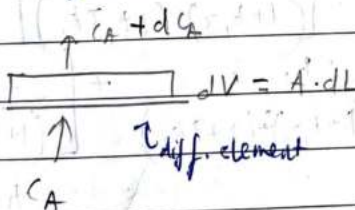 C_A + dC_A
dV = A·dL
τ diff. element
C_A